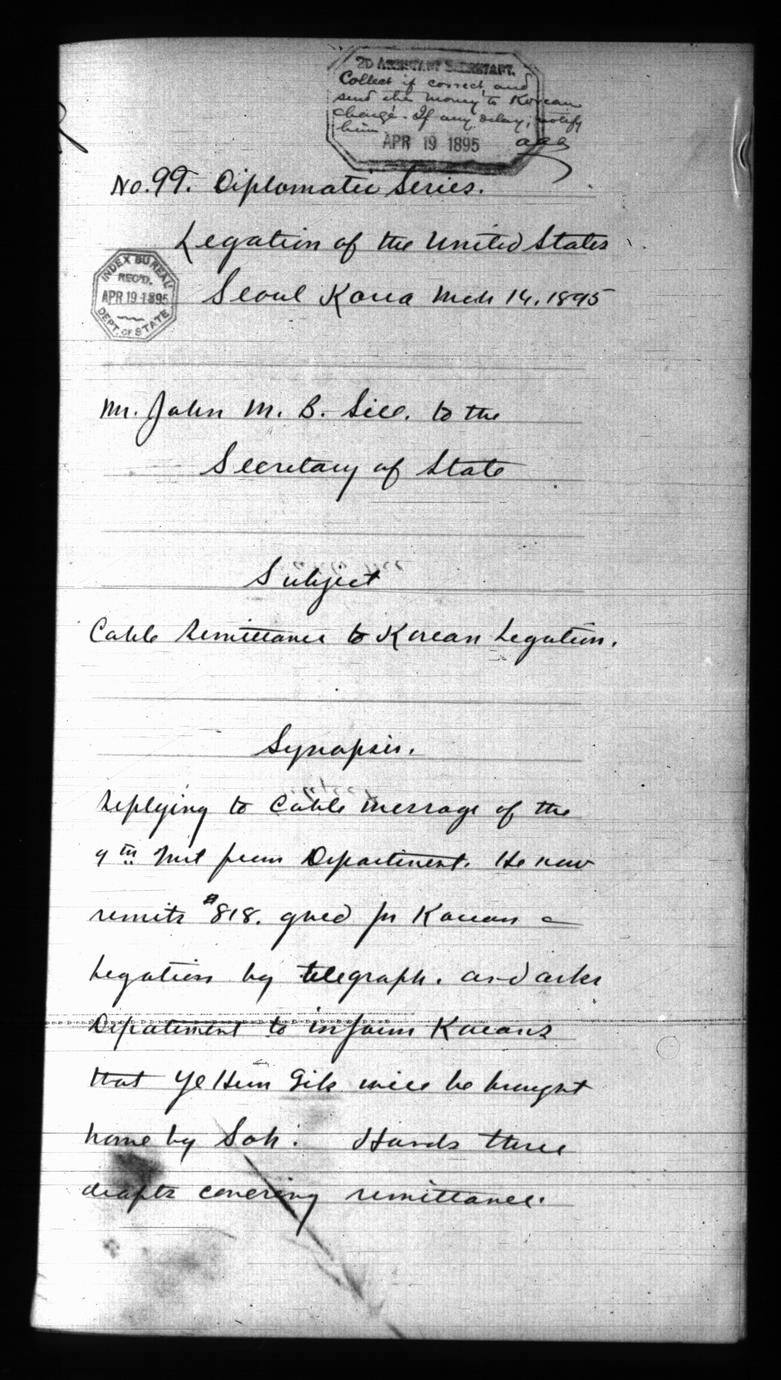 2D ASSISTANT SECRETARY.
Collect if correct and
send the money to Korean
chargé. If any delay, notify
him
APR 19 1895
aaa
No. 99. Diplomatic Series.
Legation of the United States
INDEX BUREAU
REC'D.
APR 19 1895
DEPT. OF STATE
Seoul Korea Mch 14. 1895
Mr. John M. B. Sill. to the
Secretary of State
Subject
Cable Remittance to Korean Legation.
Synopsis.
Replying to Cable message of the
9th Inst from Department. He now
remits $818. gold for Korean
Legation by telegraph. and asks
Department to inform Koreans
that Ye Hun Gik will be brought
home by Soh. Hands three
drafts covering remittance.